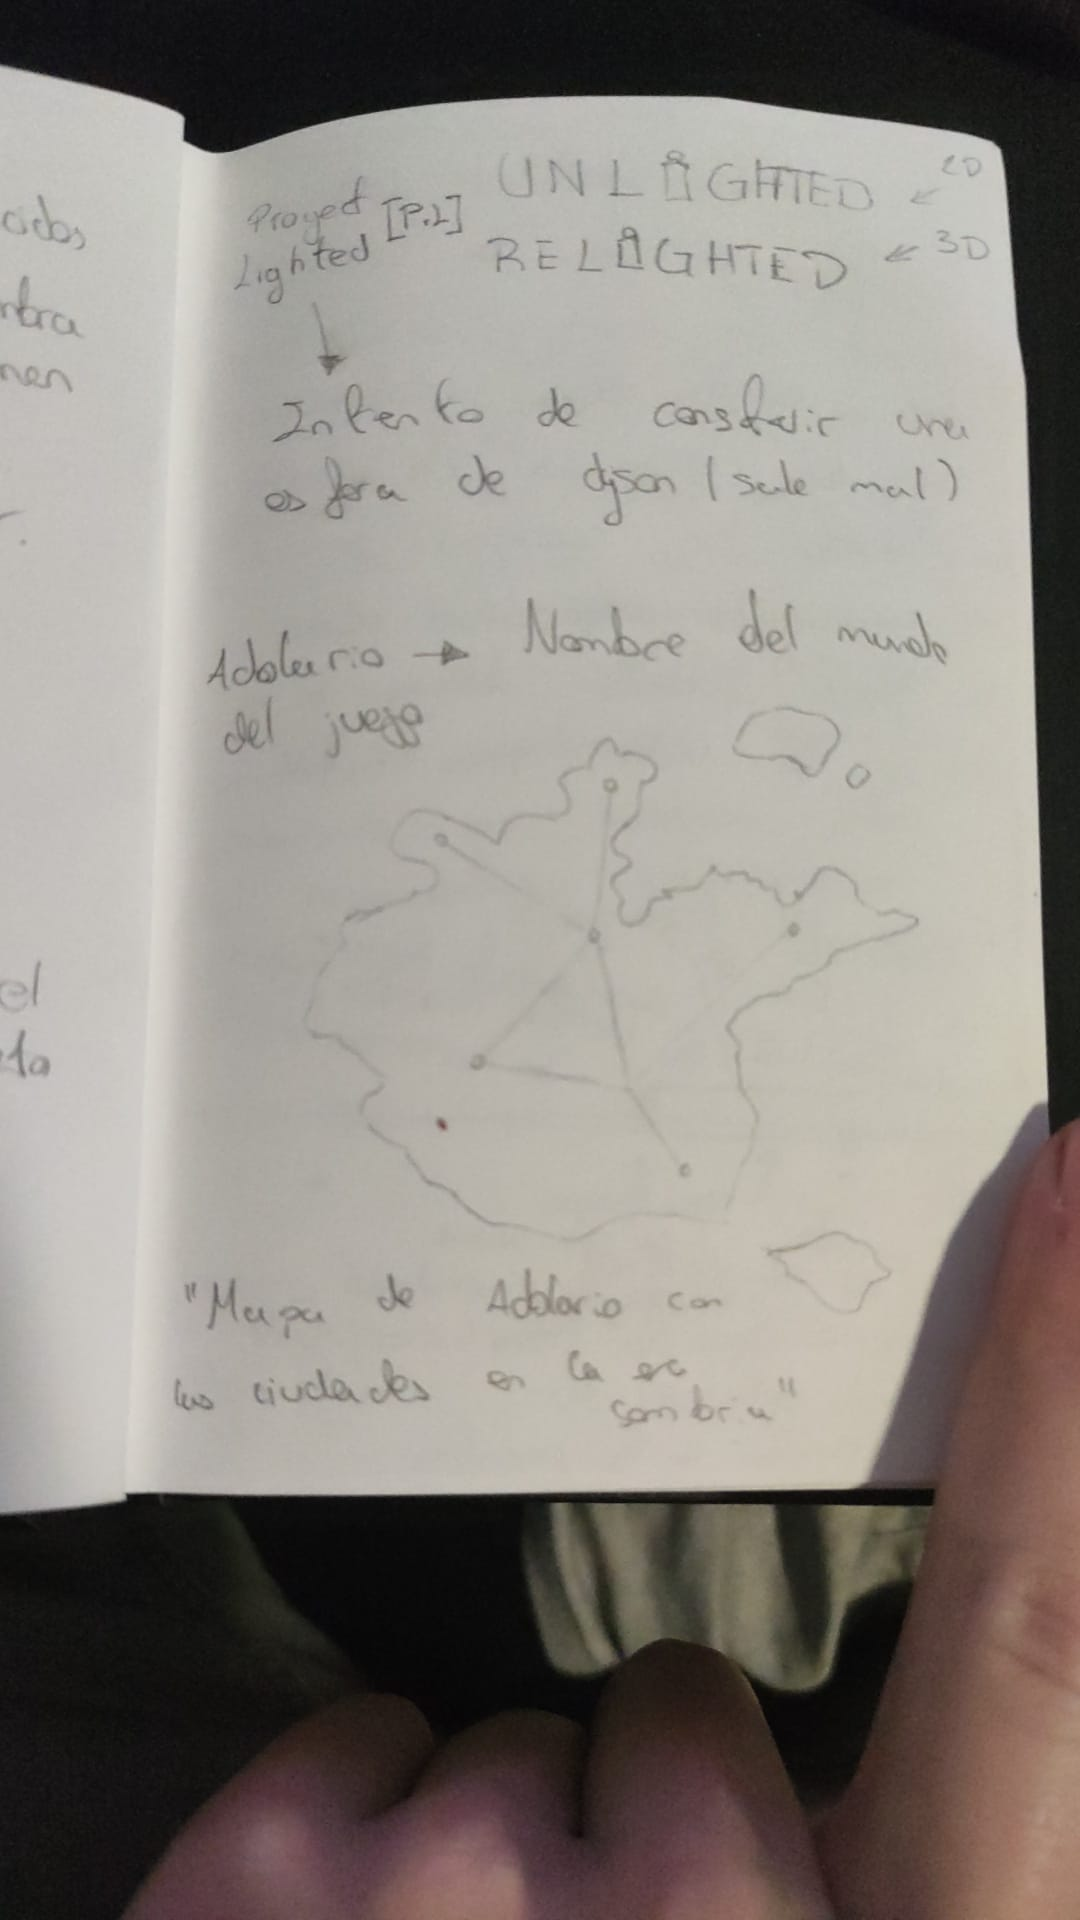 cidos
mbra
nen
el
ta
Proyect [P.L]
Lighted
UNLIGHTED ← 2D
RELIGHTED ← 3D
Intento de construir una
esfera de dyson (sale mal)
Adolario → Nombre del mundo
del juego
"Mapa de Adolario con
las ciudades en la era
sombria"